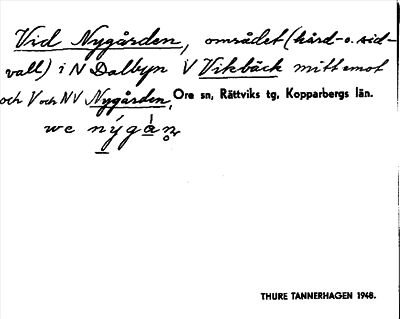 Vid Nygården, området (hård- o. sid-
vall) i N Dalbyn V Vikbäck mitt emot
och V och NV Nygården, Ore sn, Rättviks tg, Kopparbergs län.
we nýgàn̥
THURE TANNERHAGEN 1948.